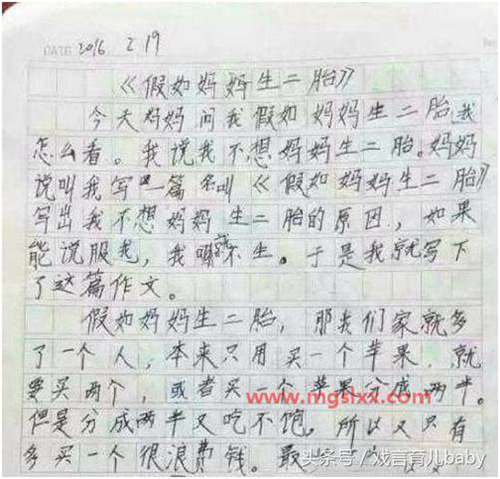 DATE 2016 2 19
《假如妈妈生二胎》
今天妈妈问我假如妈妈生二胎我
怎么看。我说我不想妈妈生二胎。妈妈
说叫我写一篇名叫《假如妈妈生二胎》
写出我不想妈妈生二胎的原因，如果
能说服我，我就不生。于是我就写下
了这篇作文。
假如妈妈生二胎，那我们家就多
了一个人，本来只用买一个苹果，就
要买两个，或者买一个苹果分成两半。
www.mgslxx.com
但是分成两半又吃不饱。所以又只有
多买一个很浪费钱。最
头条号/戏言育儿baby